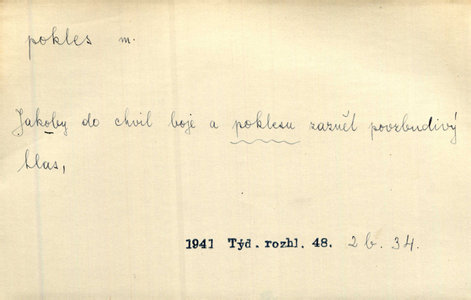 pokles m.
Jakoby do chvil boje a poklesu zazněl povzbudivý
hlas,
1941 Týd. rozhl. 48. 2 b. 34.